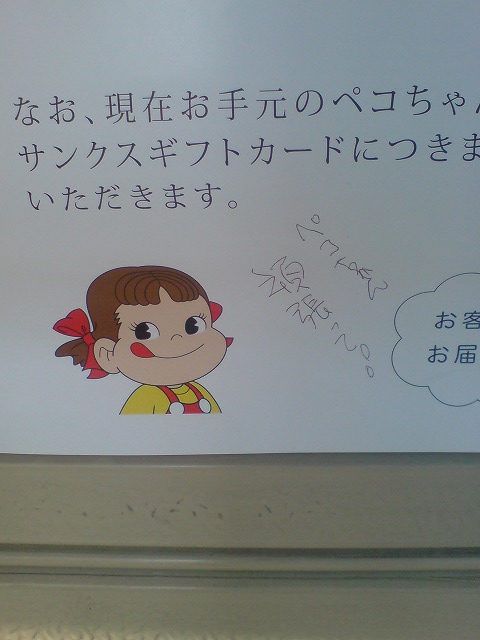 なお、現在お手元のペコちゃん
サンクスギフトカードにつきま
いただきます。
ペコちゃん
頑張って。。
お客
お届